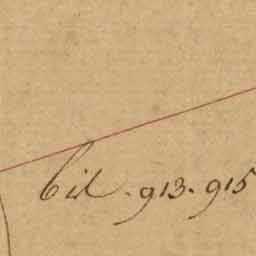 bil. 913. 915